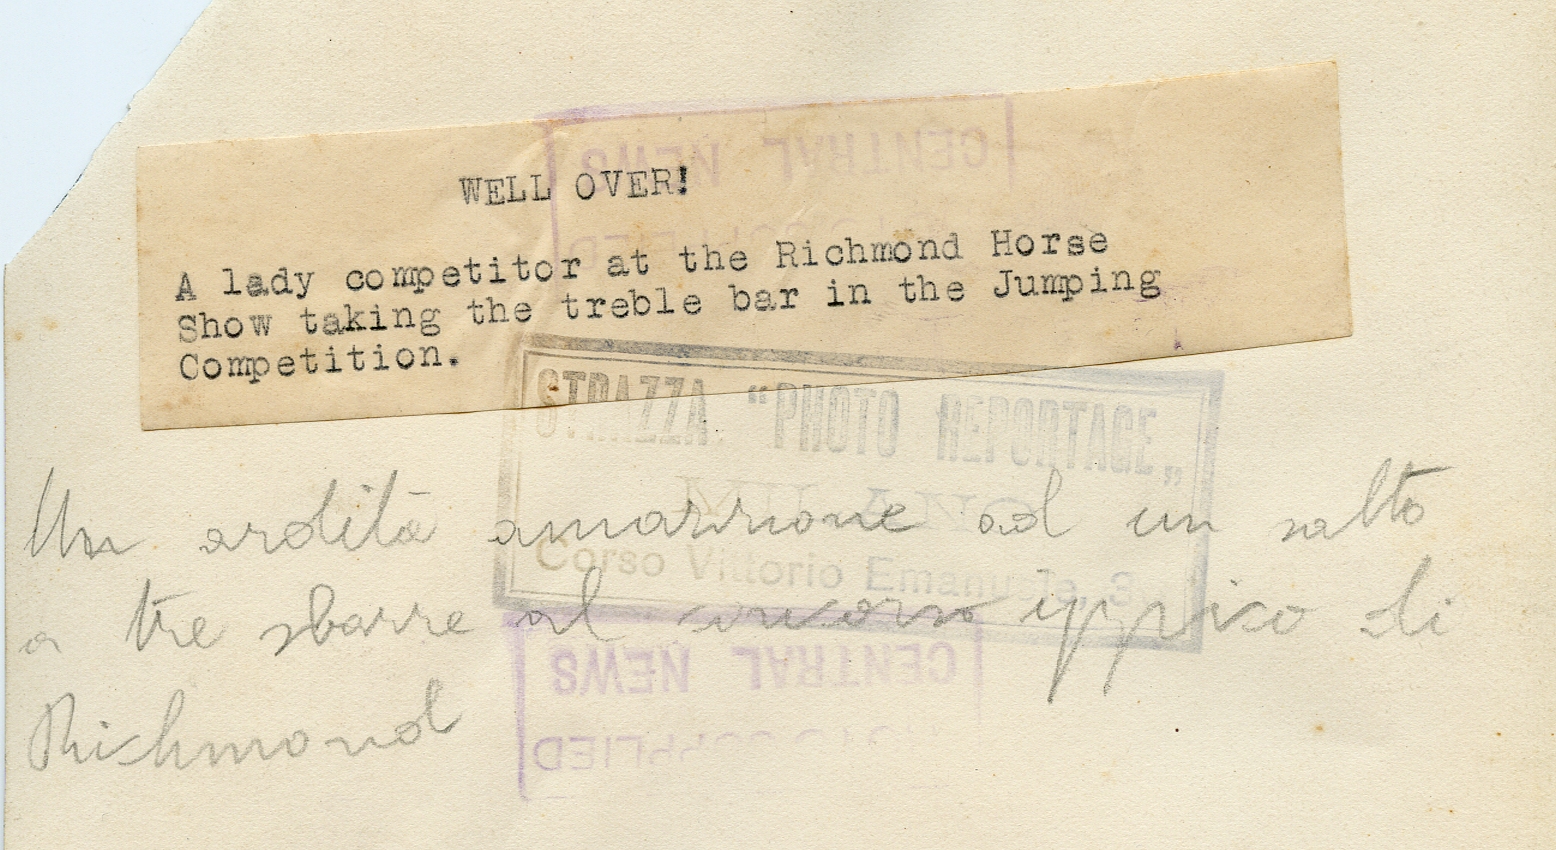 CENTRAL NEWS
WELL OVER!
A lady competitor at the Richmond Horse
Show taking the treble bar in the Jumping
Competition.
STRAZZA "PHOTO REPORTAGE"
MILANO
Corso Vittorio Emanuele, 3
Un ardita amazzone ad un salto
a tre sbarre al concorso ippico di
Richmond
CENTRAL NEWS
PHOTO SUPPLIED